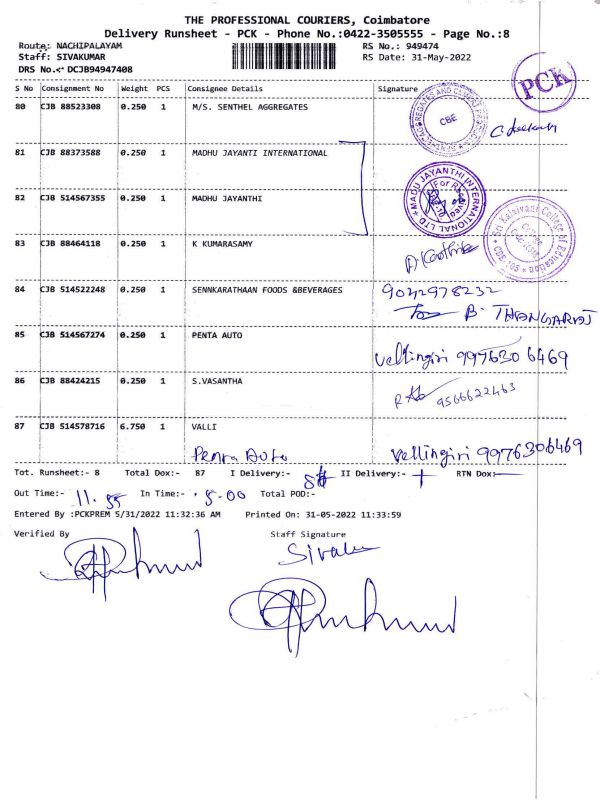 THE PROFESSIONAL COURIERS, Coimbatore
Delivery Runsheet - PCK - Phone No.:0422-3505555 - Page No.:8
Route: NACHIPALAYAM RS No.: 949474
Staff: SIVAKUMAR RS Date: 31-May-2022
DRS No.- DCJB94947408
PCK
S No Consignment No Weight PCS Consignee Details Signature
80 CJB 88523308 0.250 1 M/S. SENTHEL AGGREGATES
CBE
81 CJB 88373588 0.250 1 MADHU JAYANTI INTERNATIONAL
82 CJB 514567355 0.250 1 MADHU JAYANTHI
MADU JAYANTHI INTERNATIONAL LTD
For Received
Sri Kalaivani College of Education
83 CJB 88464118 0.250 1 K KUMARASAMY
84 CJB 514522248 0.250 1 SENNKARATHAAN FOODS &BEVERAGES 9042978232
B. THANGARAJ
85 CJB 514567274 0.250 1 PENTA AUTO
Vellingiri 9976306469
86 CJB 88424215 0.250 1 S.VASANTHA
9566622463
87 CJB 514578716 6.750 1 VALLI
Penta Auto Vellingiri 9976306469
Tot. Runsheet:- 8 Total Dox:- 87 I Delivery:- II Delivery:- RTN Dox:-
Out Time:- 11.55 In Time:- 5.00 Total POD:-
Entered By :PCKPREM 5/31/2022 11:32:36 AM Printed On: 31-05-2022 11:33:59
Verified By Staff Signature